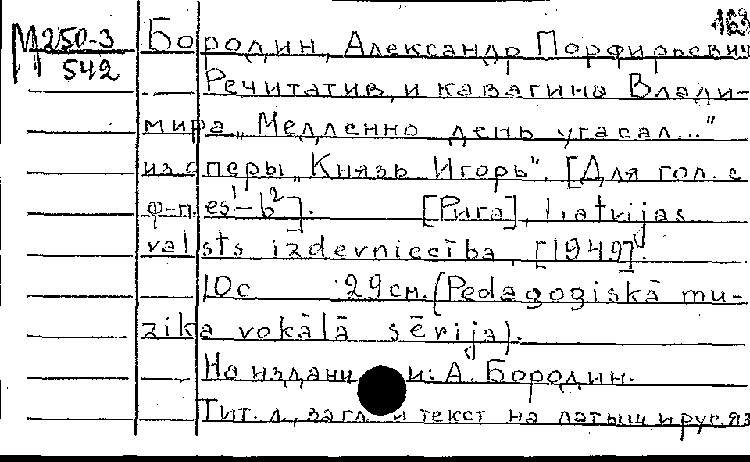 163
М250-3
542
Бородин, Александр Порфирьевич
Речитатив и каватина Влади-
мира „Медленно день угасал..."
из оперы „Князь Игорь". [Для гол. с
ф-п. es¹-b²]. [Рига], Latvijas
valsts izdevniecība, [1949].
10с 29см. (Pedagogiskā mu-
zika vokālā sērija).
На издании: А. Бородин.
Тит. л., загл. и текст на латыш. и рус. яз